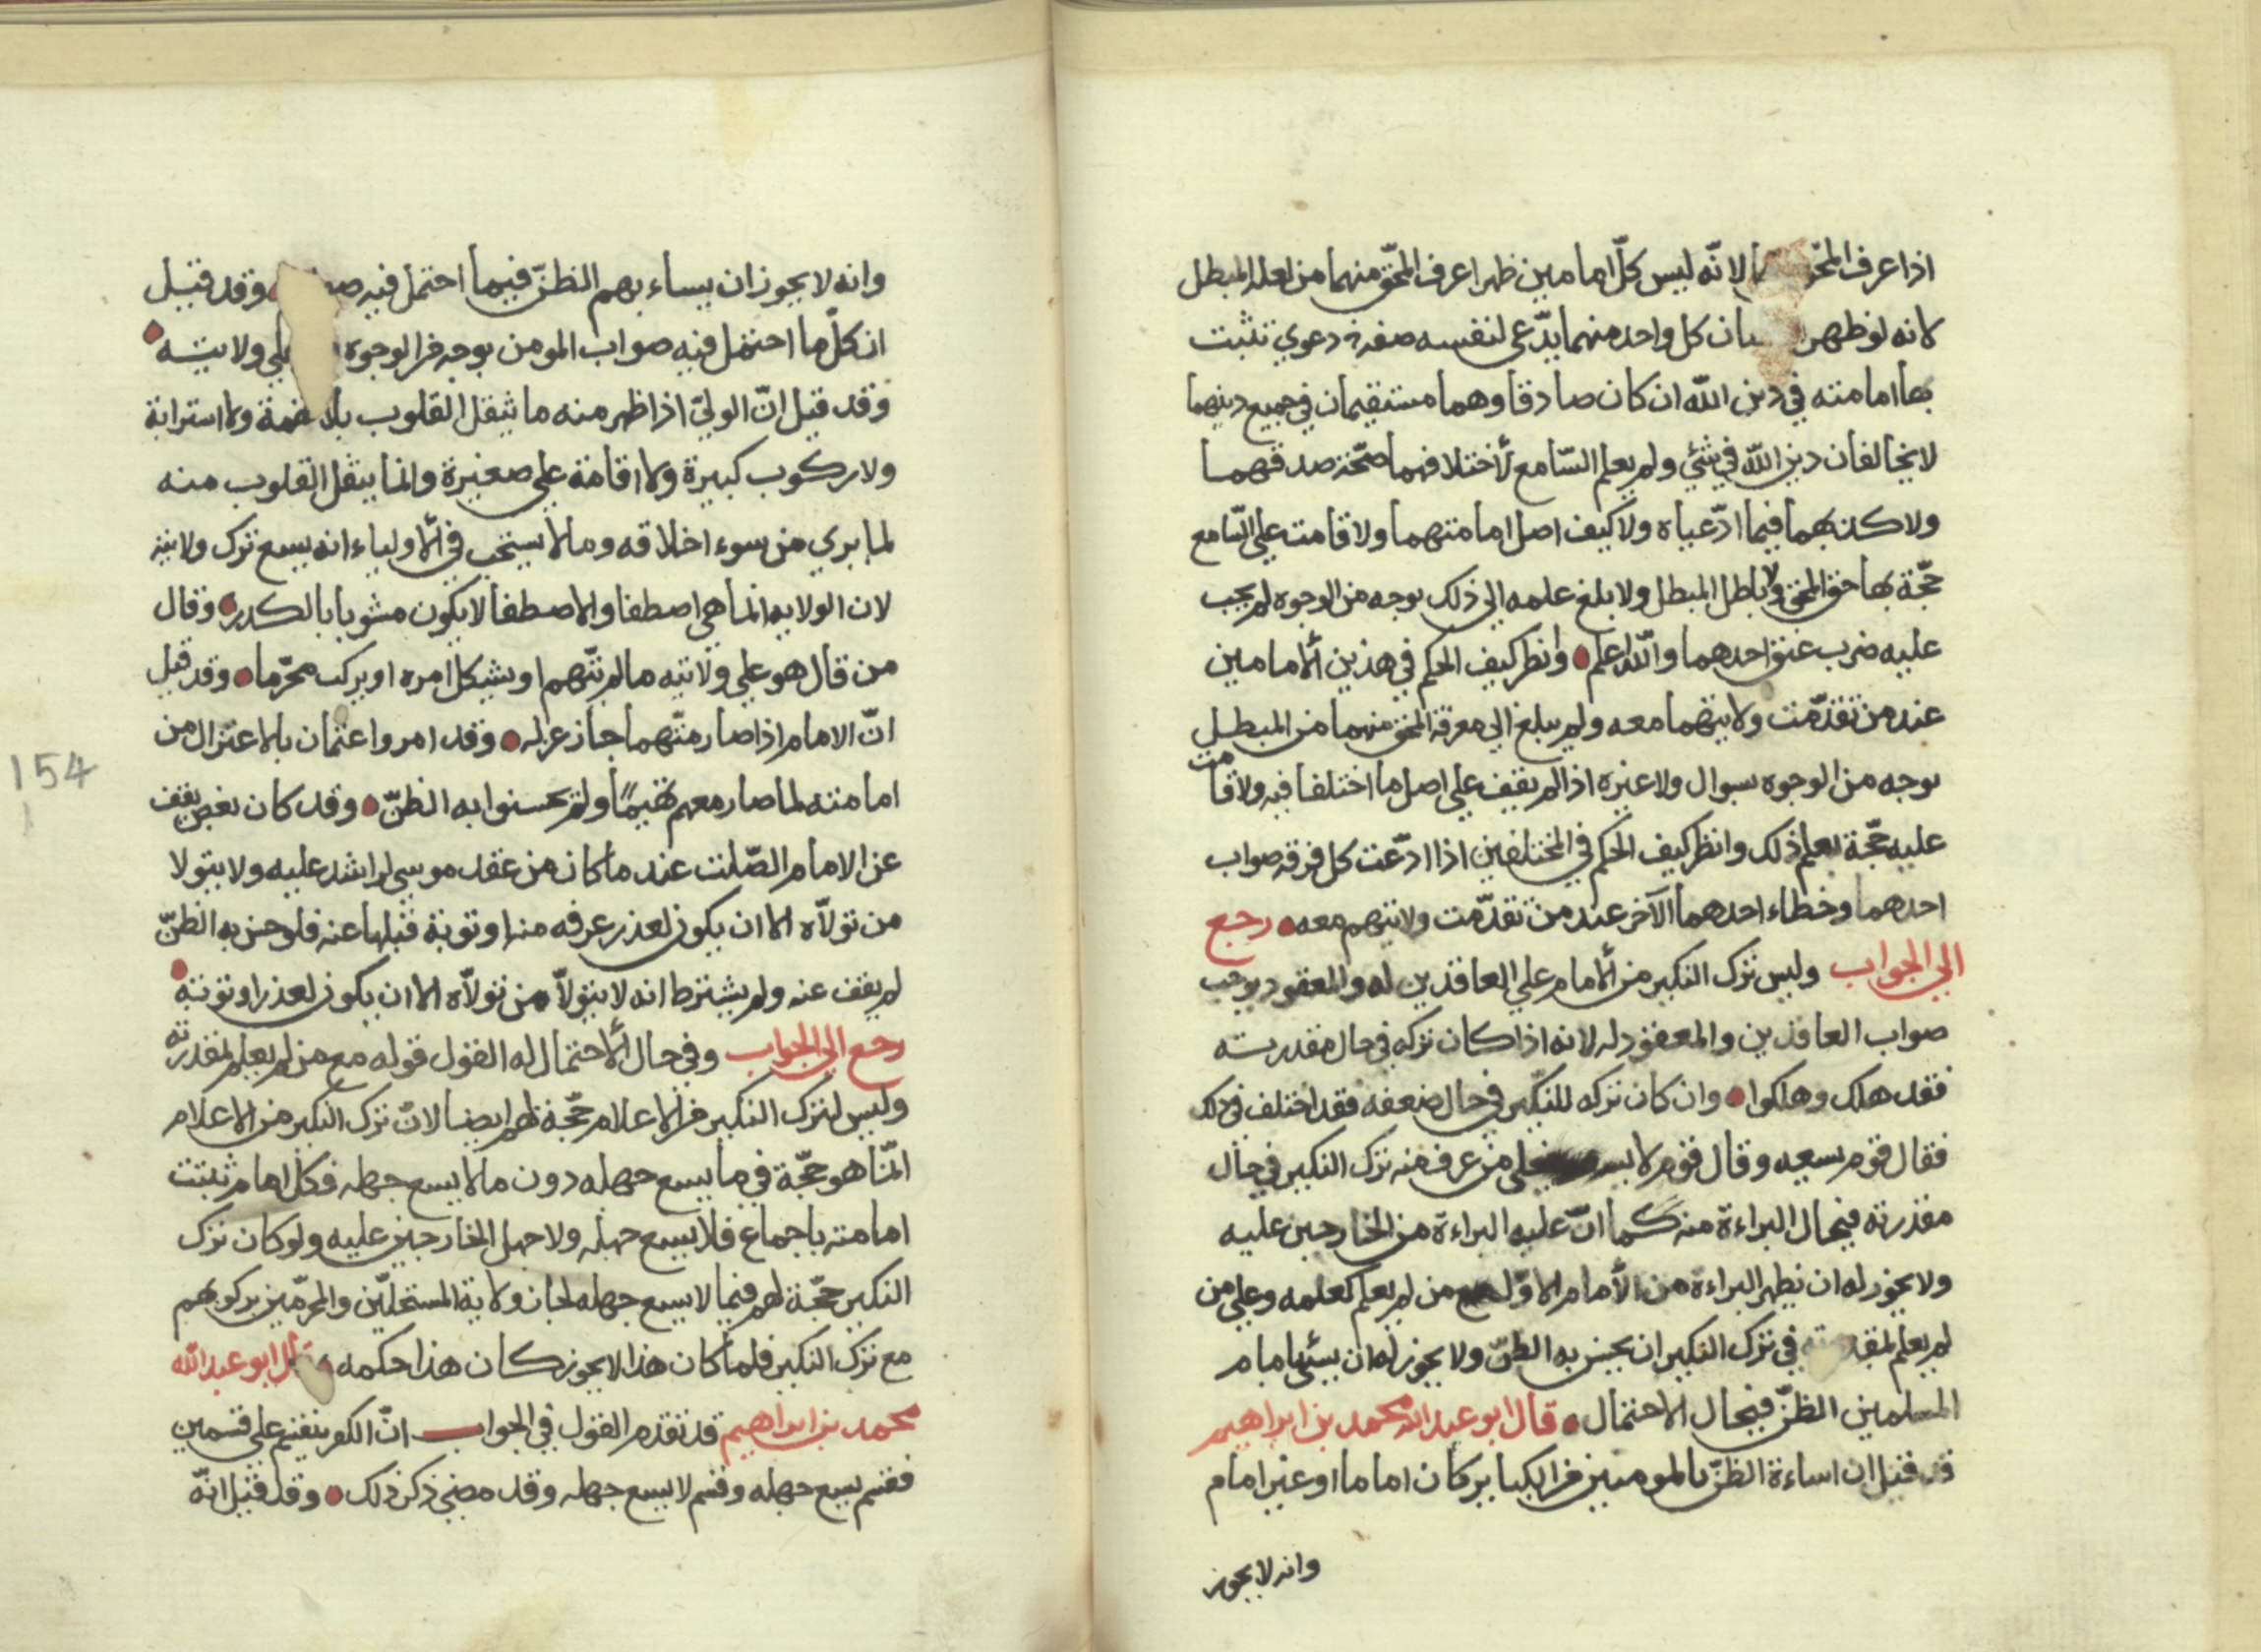 اذا عرف المحق لانّه ليس كلّ امامين ظهرا عرف المحقّ منهما من لعله المبطل
لانه لو ظهر كان كل واحد منهما يدّعي لنفسه صفة دعوي تثبت
بها امامته في دين الله ان كان صادقا وهما مستقيمان في جميع دينهما
لا يخالفان دين الله في شئي ولم يعلم السّامع لأختلافهما صحّة صدقهما
ولا كذبهما فيما ادّعياه ولا كيف اصل امامتهما ولا قامت علي السّامع
حجّة بها حق المحق ولا باطل المبطل ولا بلغ علمه الي ذلك بوجه من الوجوه لم يجب
عليه ضرب عنق احدهما والله اعلم وانظر كيف الحكم في هذين الأمامين
عند من تقدّمت ولايتهما معه ولم يبلغ الي معرفة المحق منهما من المبطل
بوجه من الوجوه بسوال ولا غيره اذا لم يقف علي اصل ما اختلفا فيه ولا قامت
عليه حجّة بعلم ذلك وانظر كيف الحكم في المختلفين اذا ادّعت كل فرقه صواب
احدهما وخطاء احدهما الآخر عند من تقدّمت ولايتهم معه رجع
الي الجواب وليس ترك النكير من الأمام علي العاقدين له والمعقود يوجب
صواب العاقدين والمعقود له لانه اذا كان تركه في حال مقدرته
فقد هلك وهلكوا وان كان تركه للنكير في حال ضعفه فقد اختلف في ذلك
فقال قوم يسعه وقال قوم لا يسع علي من عرف منه ترك النكير في حال
مقدرته فيحال البراءة منه كما انّ عليه البراءة من الخارجين عليه
ولا يجوز له ان يظهر البراءة من الأمام الاوّل مع من لم يعلم كعلمه وعلي من
لم يعلم لمقدرته في ترك النكير ان يحسن به الظنّ ولا يجوز له ان يسئ بامام
المسلمين الظنّ فيحال الاحتمال قال ابو عبد الله محمد بن ابراهيم
قد قيل ان اساءة الظنّ بالمومنين من الكباير كان اماما او غير امام
وانه لا يجوز
وانه لا يجوز ان يساء بهم الظنّ فيما احتمل فيه وقد قيل
ان كلّ ما احتمل فيه صواب المومن بوجه من الوجوه علي ولايته
وقد قيل انّ الوليّ اذا ظهر منه ما يثقل القلوب بلا تهمة ولا استرابة
ولا ركوب كبيرة ولا اقامة علي صغيرة وانما يثقل القلوب منه
لما يري من سوء اخلاقه وما لا يستحب في الأولياء انه يسع ترك ولايته
لان الولايه انما هي اصطفا والاصطفا لا يكون مشوبا بالكدر وقال
من قال هو علي ولايته ما لم يتّهم او يشكل امره او يركب محرّما وقد قيل
انّ الامام اذا صار متّهما جاز عزله وقد امروا عثمان بالاعتزال من
امامته لما صار معهم تهيمًا ولم يحسنوا به الظنّ وقد كان بعض يقف
عن الامام الصّلت عند ما كان من عقد موسي لراشد عليه ولا يتولا
من تولّاه الا ان يكون لعذر عرفه منه او توبة قبلها عنه فلو حسن به الظنّ
لم يقف عنه ولم يشترط انه لا يتولّا من تولّاه الا ان يكون لعذر او توبته
رجع الي الجواب وفي حال الأحتمال له القول قوله مع من لم يعلم لمقدرته
وليس لترك النكير من الاعلام حجّة لهم ايضا لانّ ترك النكير من الاعلام
انّما هو حجّة في ما يسع جهله دون ما لا يسع جهله فكل امام ثبتت
امامته باجماع فلا يسع جهله ولا جهل الخارجين عليه ولو كان ترك
النكير حجّة لهم فيما لا يسع جهله لجاز ولاية المستحلّين والمحرّمين بركوبهم
مع ترك النكير فلما كان هذا لا يجوز كان هذا حكمه قال ابو عبد الله
محمد بن ابراهيم قد تقدم القول في الجواب انّ الكفر ينقسم علي قسمين
فقسم يسع جهله وقسم لا يسع جهله وقد مضي ذكر ذلك وقد قيل انّه
154